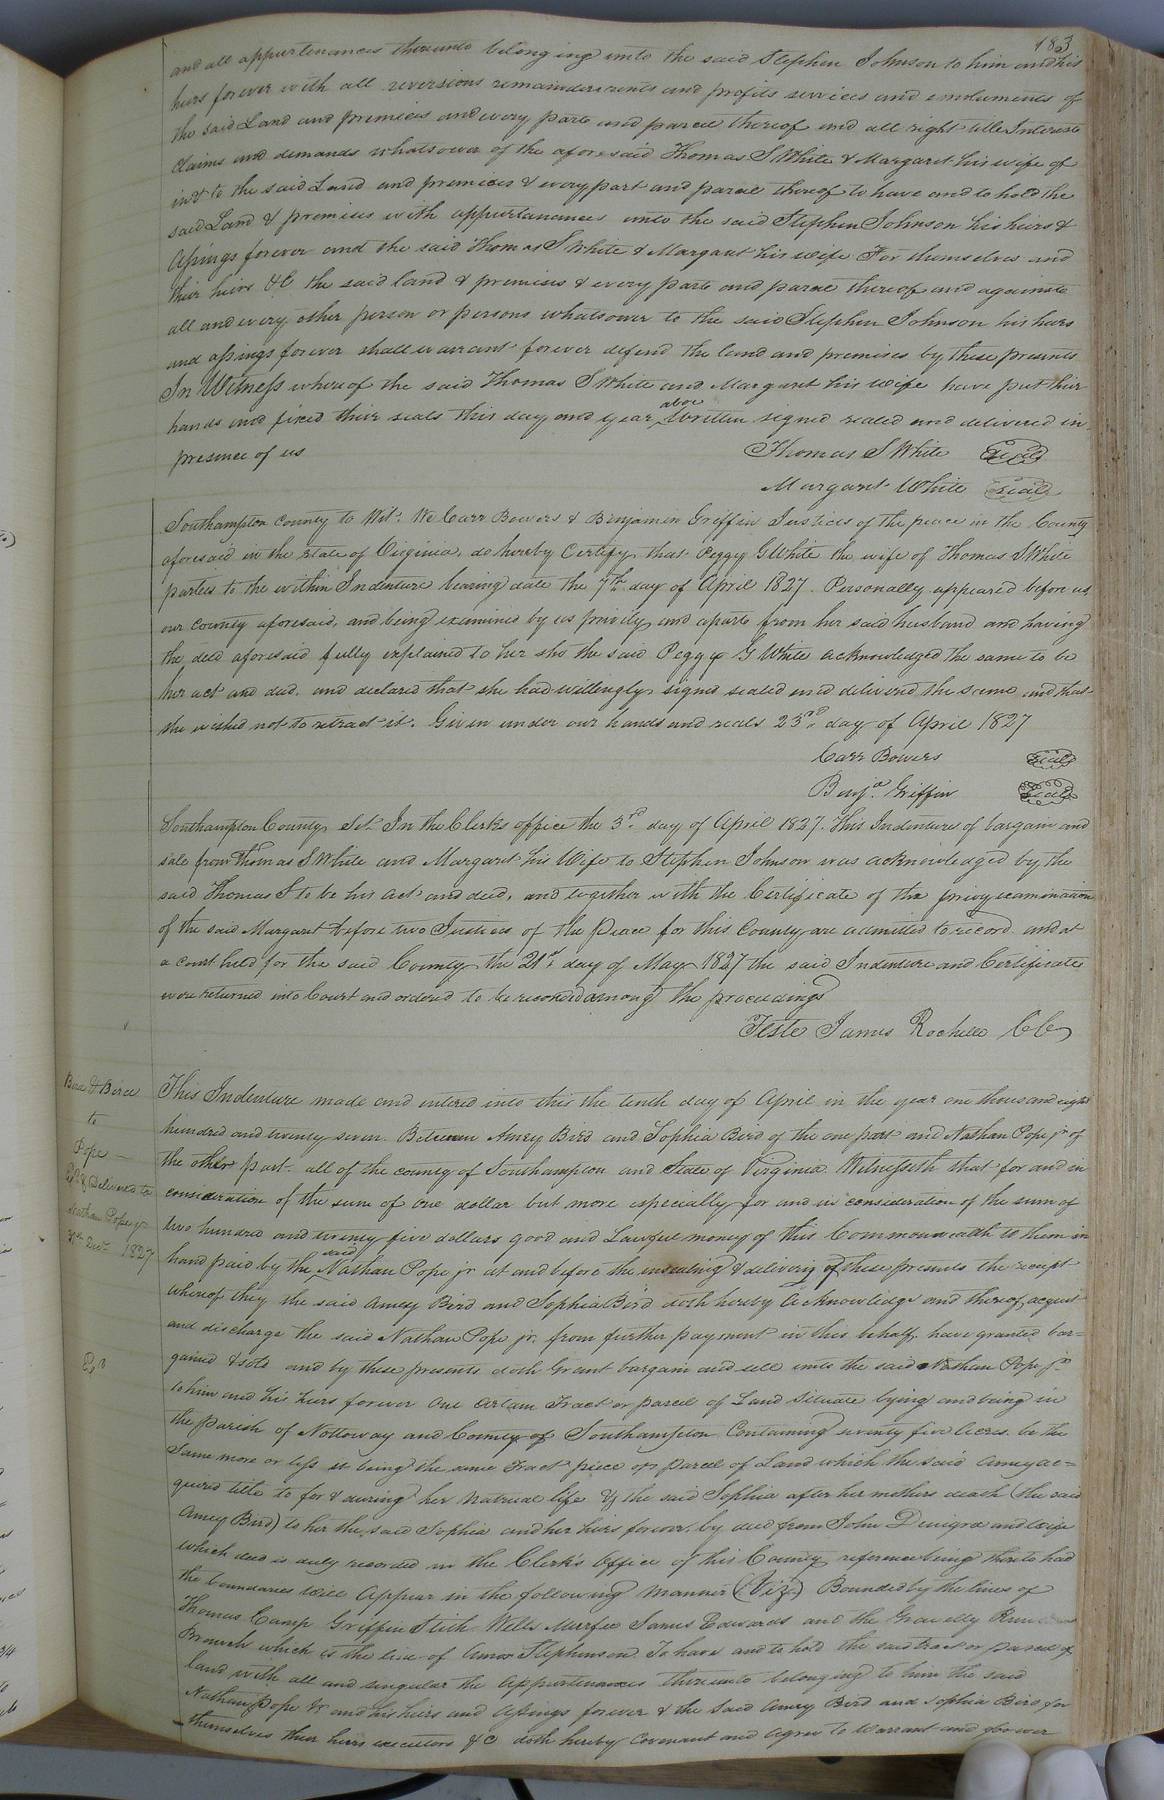 183
and all appurtenances thereunto belonging unto the said Stephen Johnson to him and his
heirs forever with all reversions remainders rents and profits services and emoluments of
the said Land and premises and every parte and parcel thereof and all right title Intereste
Claims and demands whatsoever of the aforesaid Thomas S White & Margaret his wife of
in & to the said Land and premises & every part and parcel thereof to have and to hold the
said Land & premises with appurtanances unto the said Stephen Johnson his heirs &
Assings forever and the said Thomas S White & Margaret his wife For themselves and
their heirs &C the said land & premises & every parte and parcel thereof and againste
all and every other person or persons whatsover to the said Stephen Johnson his heirs
and assings forever shall warrant forever defend the land and premises by these presents
In Witness whereof the said Thomas S White and Margaret his wife have put their
hands and fixed their seals this day and year above Written signed sealed and delivered in
presence of us Thomas S White seal
Margaret White seal
Southampton County to Wit: We Carr Bowers & Benjamin Griffin Justices of the peace in the County
aforesaid in the state of Virginia, do hereby Certify that Peggy G White the wife of Thomas S White
parties to the within Indenture bearing date the 7th day of April 1827. Personally appeared before us,
our County aforesaid, and being examined by us privily and aparte from her said husband and having
the deed aforesaid fully explained to her she the said Peggy G White acknowledged the same to be
her act and deed. and declared that she had willingly signed sealed and delivered the same and that
she wished not to retract it. Given under our hands and seals 23rd day of April 1827
Carr Bowers seal
Benja Griffin seal
Southampton County Sct. In the Clerks office the 3rd day of April 1827. This Indenture of bargain and
sale from Thomas S White and Margaret his Wife to Stephen Johnson was acknowledged by the
said Thomas S to be his act and deed, and together with the Certificate of the privy examination
of the said Margaret before two Justices of the Peace for this County are admitted to record. and at
a court held for the said County the 21st day of May 1827 the said Indenture and Certificate
were returned into Court and ordered to be recorded among the proceedings
Teste James Rochelle CC
Bird & Bird
to
Pope
Ex & Delivered to
Nathan Pope jr
1827
Exd
This Indenture made and entered into this the tenth day of April in the year one thousand eight
hundred and twenty seven. Between Amey Bird and Sophia Bird of the one part and Nathan Pope jr of
the other part. all of the county of Southampton and State of Virginia Witnesseth that for and in
consideration of the sum of one dollar but more especially for and in consideration of the sum of
two hundred and twenty five dollars good and Lawful money of this Commonwealth to them in
hand paid by the said Nathan Pope jr at and before the insealing & delivering of these presents the receipt
whereof they the said Amey Bird and Sophia Bird doth hereby Acknowledge and thereof acquit
and discharge the said Nathan Pope jr. from further payment in this behalf. have granted bar=
gained & sold and by these presents doth Grant bargain and sell unto the said Nathan Pope jr
to him and his heirs forever One certain Tract or parcel of Land situate lying and being in
the parish of Nottoway and County of Southampton Containing seventy five Acres be the
Same more or less it being the same Tract piece or parcel of Land which the said Amey ac=
quired title to for & during her natrual life & the said Sophia after her mothers death (the said
Amey Bird) to her the said Sophia and her heirs forever. by deed from John and wife
which deed is duly recorded in the Clerk's Office of this County reference being thereto had
the boundaries will Appear in the following manner (Viz) Bounded by the lines of
Thomas Camp Griffin Stith Wells Murfee James Edwards and the Gravelly Run
Branch which is the line of Amos Stephenson To have and to hold the said tract or parcel of
land with all and singular the Appurtenances thereunto belonging to him the said
Nathan Pope Jr and his heirs and Assings forever & the Said Amey Bird and Sophia Bird for
themselves their heirs executors &C doth hereby Covenant and agree to Warrant and forever